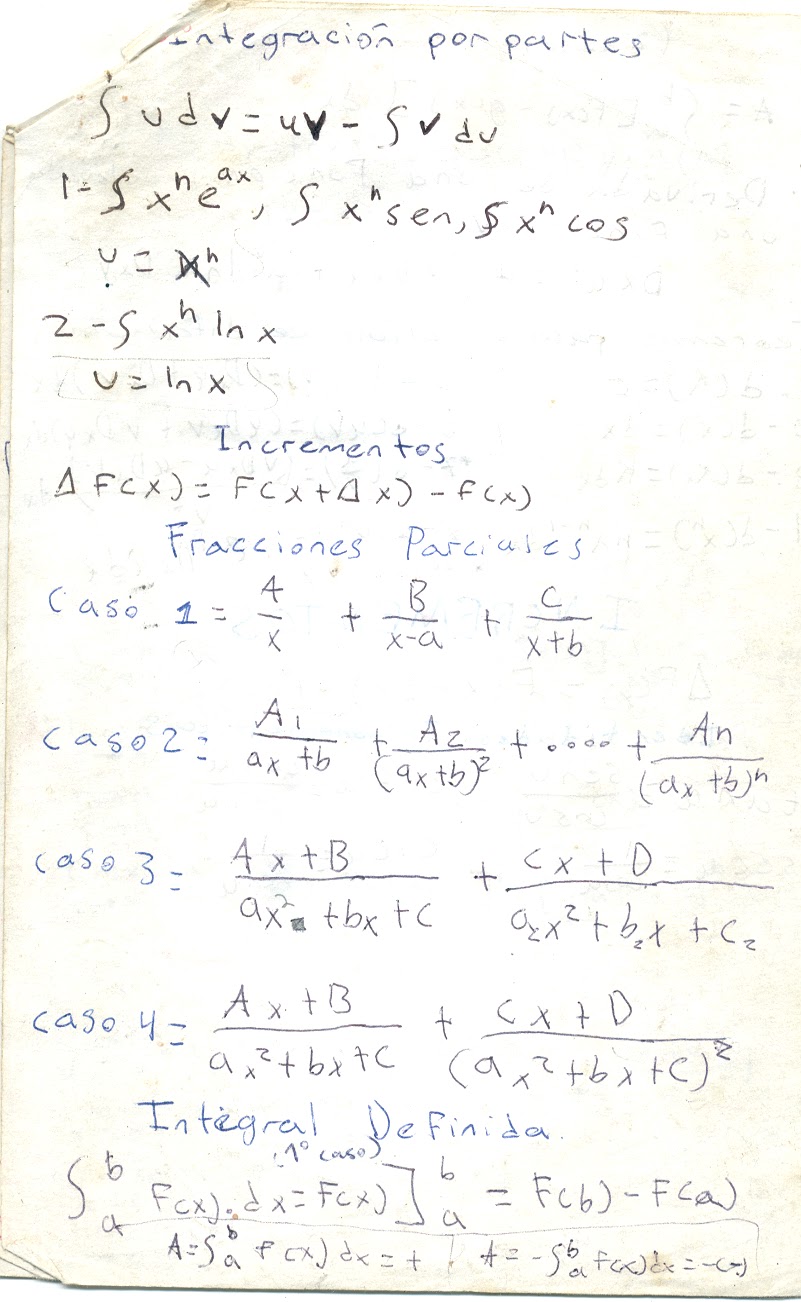 Integración por partes
∫ u dv = uv - ∫ v du
1- ∫ xⁿ e^ax, ∫ xⁿ sen, ∫ xⁿ cos
u = xⁿ
2 - ∫ xⁿ ln x
u = ln x
Incrementos
Δ F(x) = F(x + Δx) - f(x)
Fracciones Parciales
Caso 1 = A/x + B/(x-a) + C/(x+b)
Caso 2 = A₁/(ax+b) + A₂/(ax+b)² + .... + An/(ax+b)ⁿ
caso 3 = (Ax+B)/(ax²+bx+c) + (Cx+D)/(a₂x²+b₂x+c₂)
caso 4 = (Ax+B)/(ax²+bx+c) + (Cx+D)/(ax²+bx+c)²
Integral Definida
(1º caso)
∫ₐᵇ F(x).dx = F(x)]ₐᵇ = F(b) - F(a)
A=∫ₐᵇ f(x)dx = + | A = -∫ₐᵇ f(x)dx = -(-)